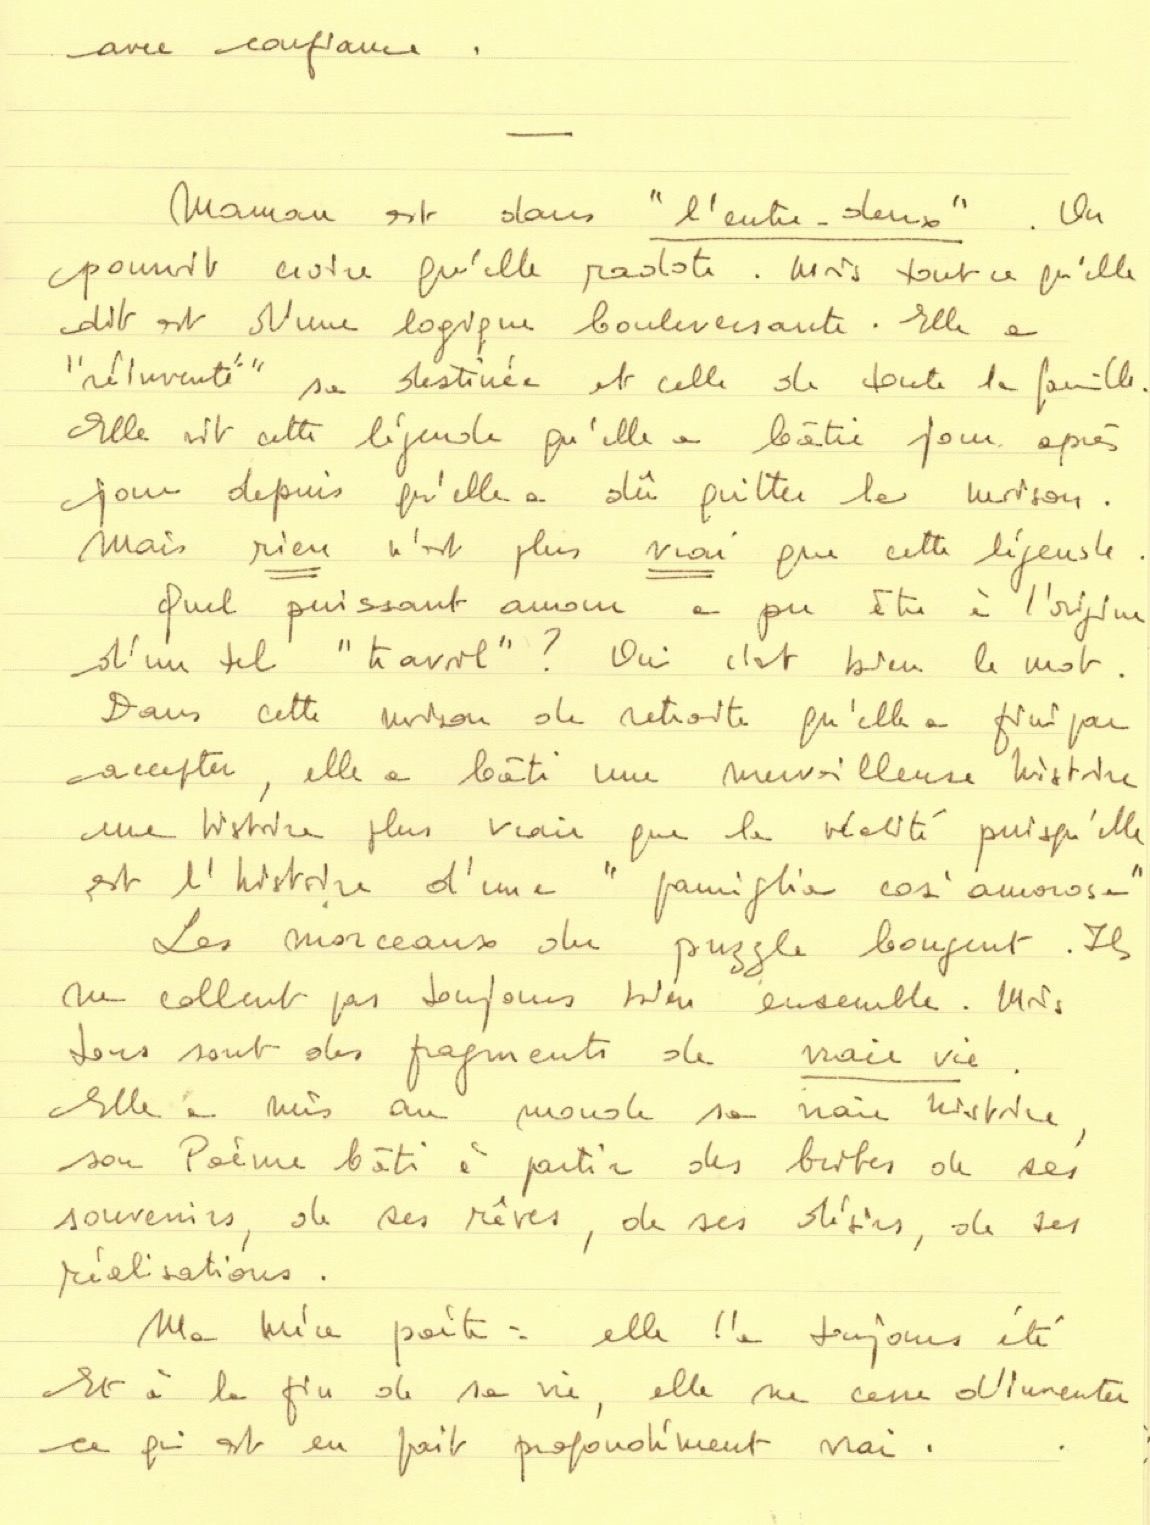 avec confiance .
—
Maman est dans "l'entre-deux" . On
pourrait croire qu'elle radote . Mais tout ce qu'elle
dit est d'une logique bouleversante . Elle a
"réinventé" sa destinée et celle de toute la famille.
Elle vit cette légende qu'elle a bâtie jour après
jour depuis qu'elle a dû quitter la maison .
Mais rien n'est plus vrai que cette légende .
Quel puissant amour a pu être à l'origine
d'un tel "travail" ? Oui c'est bien le mot .
Dans cette maison de retraite qu'elle a fini par
accepter, elle a bâti une merveilleuse histoire
une histoire plus vraie que la réalité puisqu'elle
est l'histoire d'une " famiglia così amorosa"
Les morceaux du puzzle bougent . Ils
ne collent pas toujours bien ensemble . Mais
tous sont des fragments de vraie vie .
Elle a mis au monde sa vraie histoire,
son Poème bâti à partir des bribes de ses
souvenirs, de ses rêves, de ses désirs, de ses
réalisations .
Ma mère poète : elle l'a toujours été
Et à la fin de sa vie, elle ne cesse d'inventer
ce qui est en fait profondément vrai .